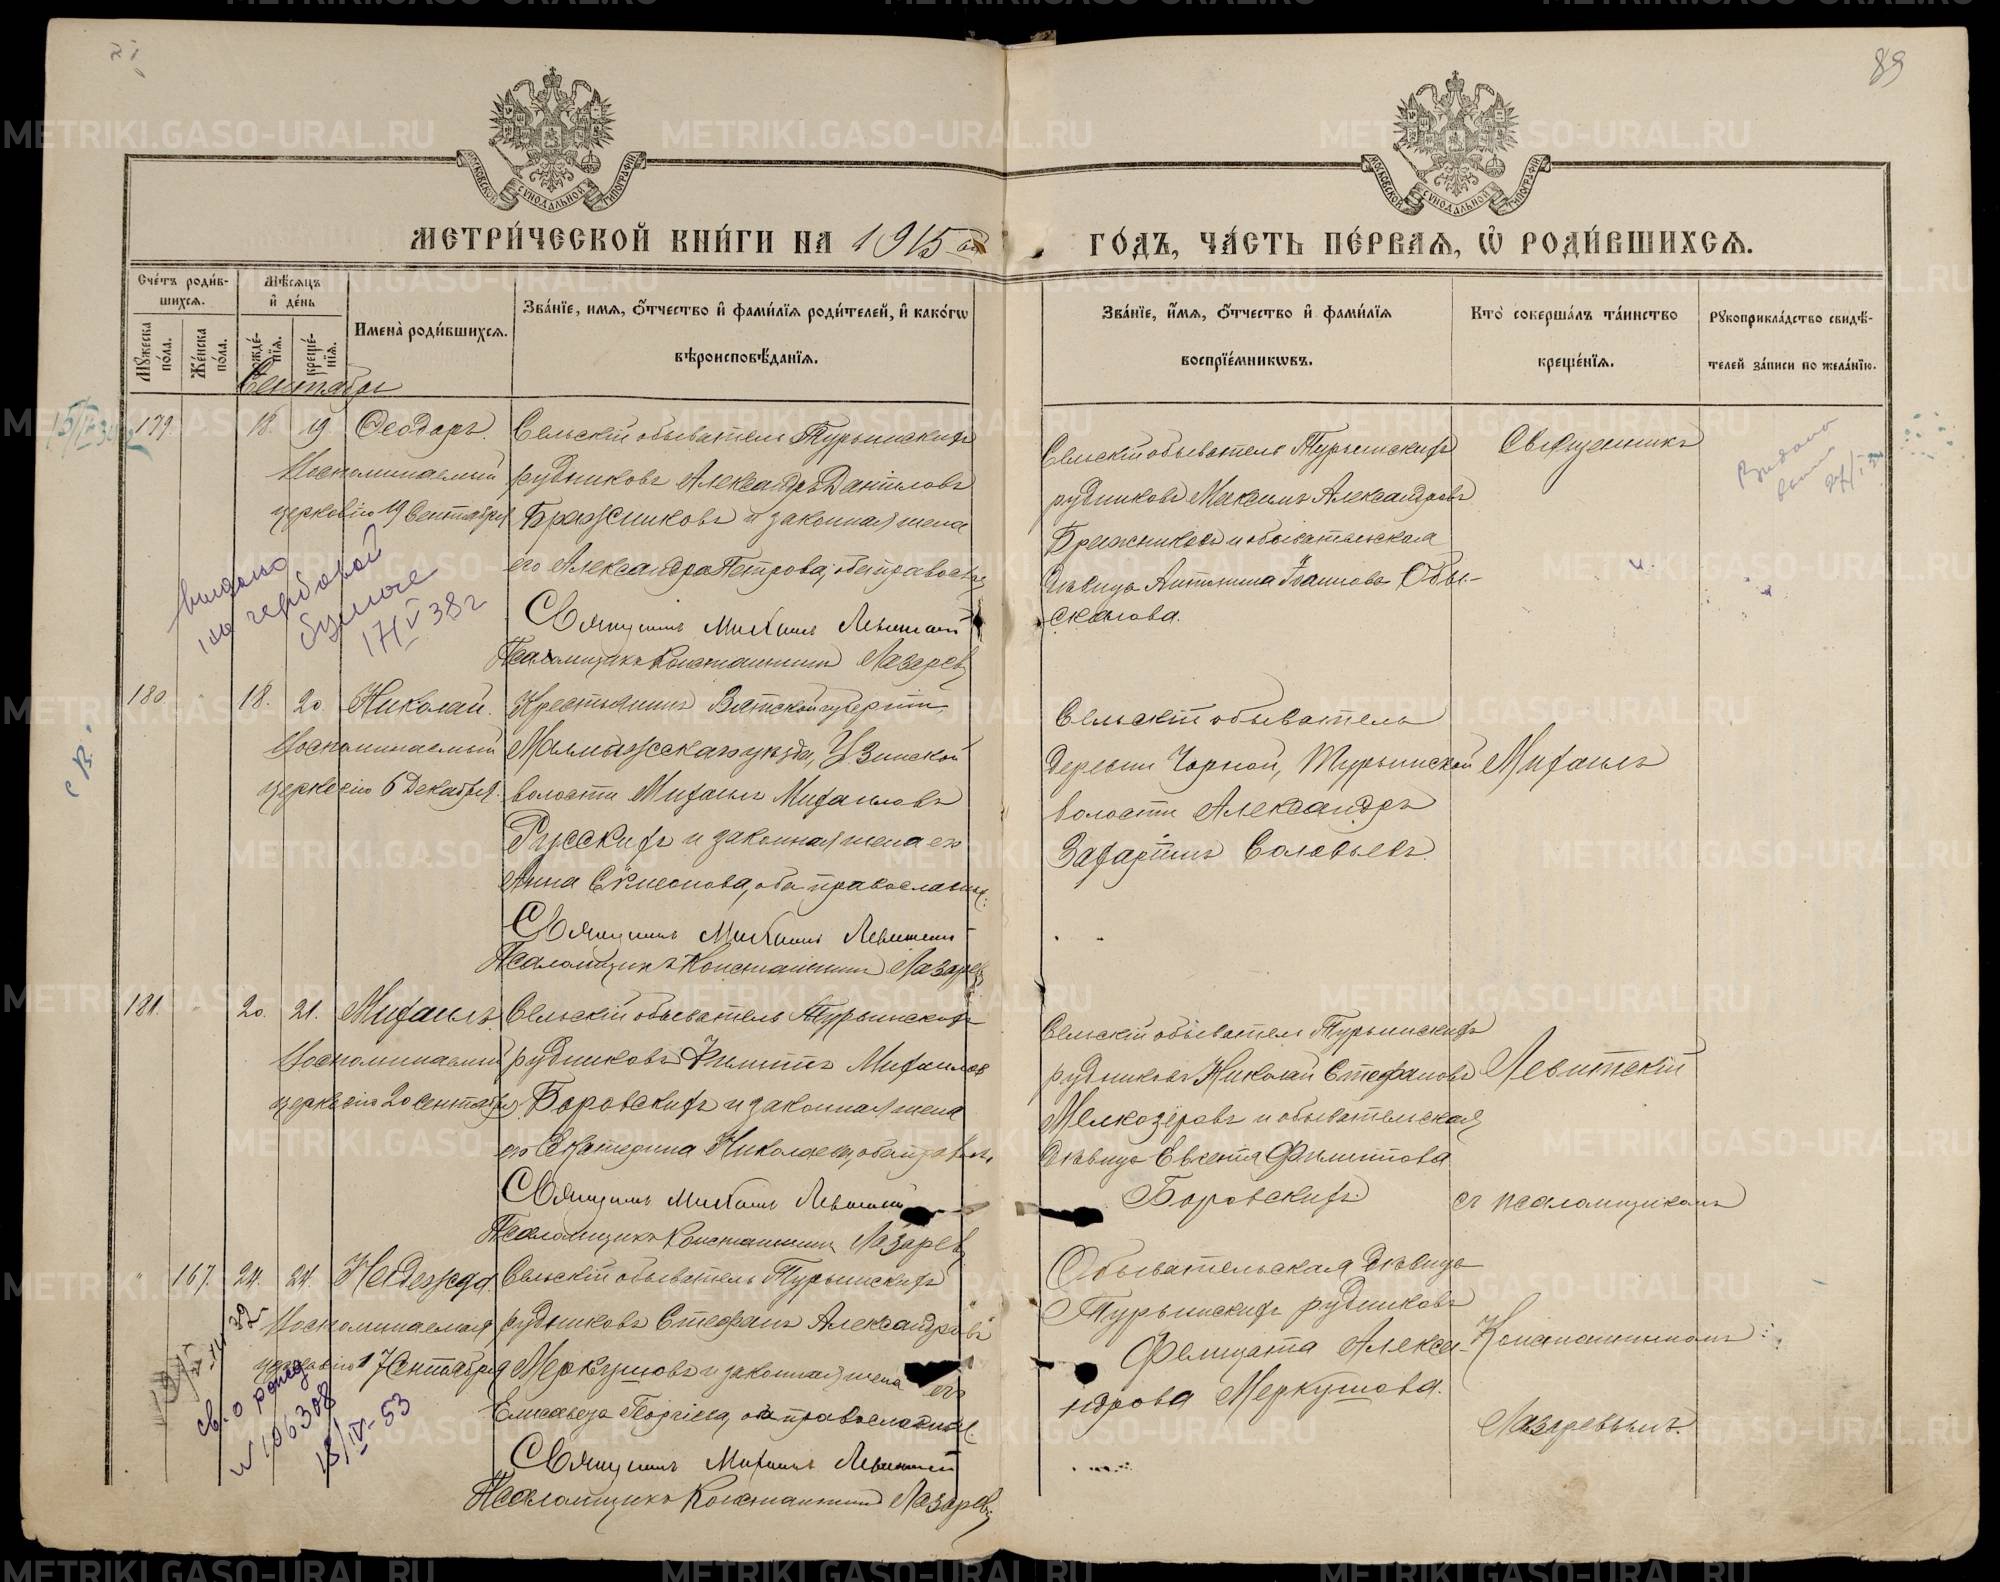 89
МОСКОВСКОЙ СѴНОДАЛЬНОЙ ТИПОГРАФІИ
МОСКОВСКОЙ СѴНОДАЛЬНОЙ ТИПОГРАФІИ
МЕТРИ́ЧЕСКОЙ КНИ́ГИ НА 1915 ый
ГО́ДЪ, ЧА́СТЬ ПЕ́РВАЯ, Ѽ РОДИ́ВШИХСЯ.
Сче́тъ роди́в-
шихся.
Мѣ́сяцъ
и҆ де́нь
Му́жеска
по́ла.
Же́нска
по́ла.
рожде́-
нїя.
креще́-
нїя.
И҆мена̀ роди́вшихся.
Зва́нїе, и҆мя, ѻ҆́тчество и҆ фами́лїя роди́телей, и҆ како́гѡ
вѣроисповѣ́данїя.
Зва́нїе, и҆́мя, ѻ҆́тчество и҆ фами́лїя
воспрїе́мникѡвъ.
Кто̀ соверша́лъ та́инство
креще́нїя.
Рꙋкоприкла́дство свидѣ́-
телей за́писи по жела́нїю.
Сентябрь
179. 18. 19. Ѳеодоръ.
Воспоминаемый
церковію 19 Сентября
Сельскій обыватель Турьинскихъ
рудниковъ Александръ Даніиловъ
Бражниковъ и законная жена
его Александра Петрова, оба правосл.
Священникъ Михаилъ Левитскій
Псаломщикъ Константинъ Лазаревъ
Сельскій обыватель Турьинскихъ
рудниковъ Максимъ Александровъ
Бражниковъ и обывательская
дѣвица Антонина Іоаннова Обы-
скалова.
Священникъ
выдано
на гербовой
бумаге
17/V 38 г
180. 18. 20. Николай.
Воспоминаемый
церковію 6 Декабря.
Крестьянинъ Вятской губерніи,
Малмыжскаго уѣзда, Узинской
волости Михаилъ Михаиловъ
Русскихъ и законная жена его
Анна Сѵмеонова, оба православные.
Священникъ Михаилъ Левитскій
Псаломщикъ Константинъ Лазаревъ
Сельскій обыватель
деревни Чорной, Турьинской
волости Александръ
Захаріинъ Соловьевъ.
Михаилъ
181. 20. 21. Михаилъ
Воспоминаемый
церковію 20 сентября
Сельскій обыватель Турьинскихъ
рудниковъ Филиппъ Михаиловъ
Боровскихъ и законная жена
его Екатерина Николаева, оба правосл.
Священникъ Михаилъ Левитскій
Псаломщикъ Константинъ Лазаревъ
Сельскій обыватель Турьинскихъ
рудниковъ Николай Стефановъ
Мелкозёровъ и обывательская
дѣвица Евгенія Филиппова
Боровскихъ.
Левитскій
съ псаломщикомъ
167. 24. 24. Надежда.
Воспоминаемая
церковію 17 Сентября
Сельскій обыватель Турьинскихъ
рудниковъ Стефанъ Александровъ
Меркушовъ и законная жена его
Елисавета Георгіева, оба православные.
Священникъ Михаилъ Левитскій
Псаломщикъ Константинъ Лазаревъ
Обывательская дѣвица
Турьинскихъ рудниковъ
Фелицата Алекса-
ндрова Меркушова.
Константиномъ
Лазаревымъ.
св. о рожд
N 106308
18/IV-53
METRIKI.GASO-URAL.RU